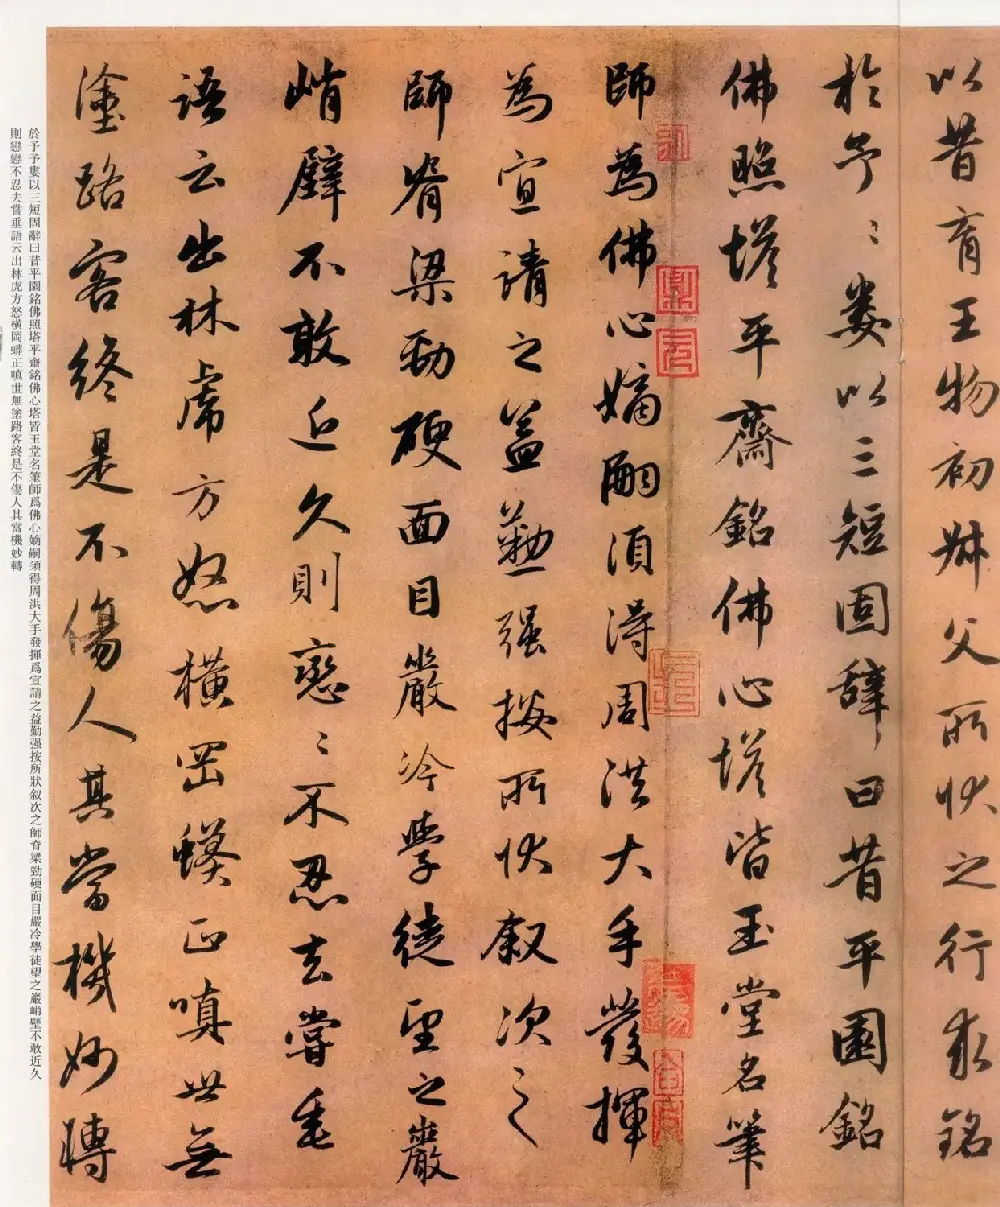 以昔育王物初叔父所状之行求銘
於予〻婁以三短固辭曰昔平園銘
佛照塔平齋銘佛心塔皆玉堂名筆
師為佛心嫡嗣須得周洪大手發揮
為宣請之益勤强按所状叙次之
師脊梁勁硬面目嚴冷學徒望之巖
峭壁不敢近久則戀〻不忍去嘗垂
語云出林虎方怒橫岡蟒正嗔世無
塗路客終是不傷人其當機妙轉
於予予婁以三短固辭曰昔平園銘佛照塔平齋銘佛心塔皆玉堂名筆師爲佛心嫡嗣須得周洪大手發揮爲宣請之益勤强按所狀叙次之師脊梁勁硬面目嚴冷學徒望之巖峭壁不敢近久
則戀戀不忍去嘗垂語云出林虎方怒橫岡蟒正嗔世無塗路客終是不傷人其當機妙轉